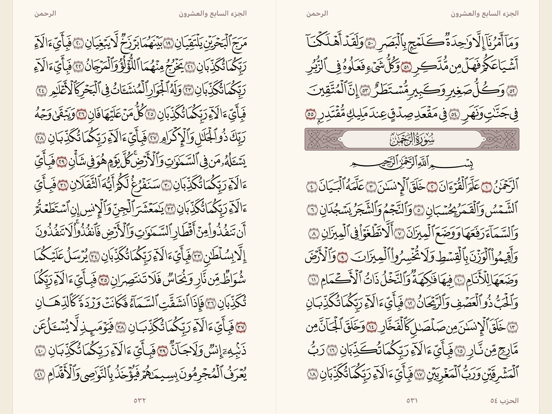 الجزء السابع والعشرون
الرحمن
وَمَآ أَمْرُنَآ إِلَّا وَٰحِدَةٌ كَلَمْحٍۭ بِٱلْبَصَرِ ٥٠ وَلَقَدْ أَهْلَكْنَآ
أَشْيَاعَكُمْ فَهَلْ مِن مُّدَّكِرٍ ٥١ وَكُلُّ شَىْءٍ فَعَلُوهُ فِى ٱلزُّبُرِ
٥٢ وَكُلُّ صَغِيرٍ وَكَبِيرٍ مُّسْتَطَرٌ ٥٣ إِنَّ ٱلْمُتَّقِينَ
فِى جَنَّٰتٍ وَنَهَرٍ ٥٤ فِى مَقْعَدِ صِدْقٍ عِندَ مَلِيكٍ مُّقْتَدِرٍۭ ٥٥
سُورَةُ الرَّحْمَٰن
بِسْمِ ٱللَّهِ ٱلرَّحْمَٰنِ ٱلرَّحِيمِ
ٱلرَّحْمَٰنُ ١ عَلَّمَ ٱلْقُرْءَانَ ٢ خَلَقَ ٱلْإِنسَٰنَ ٣ عَلَّمَهُ ٱلْبَيَانَ ٤
ٱلشَّمْسُ وَٱلْقَمَرُ بِحُسْبَانٍ ٥ وَٱلنَّجْمُ وَٱلشَّجَرُ يَسْجُدَانِ ٦
وَٱلسَّمَآءَ رَفَعَهَا وَوَضَعَ ٱلْمِيزَانَ ٧ أَلَّا تَطْغَوْا۟ فِى ٱلْمِيزَانِ ٨
وَأَقِيمُوا۟ ٱلْوَزْنَ بِٱلْقِسْطِ وَلَا تُخْسِرُوا۟ ٱلْمِيزَانَ ٩ وَٱلْأَرْضَ
وَضَعَهَا لِلْأَنَامِ ١٠ فِيهَا فَٰكِهَةٌ وَٱلنَّخْلُ ذَاتُ ٱلْأَكْمَامِ ١١
وَٱلْحَبُّ ذُو ٱلْعَصْفِ وَٱلرَّيْحَانُ ١٢ فَبِأَىِّ ءَالَآءِ رَبِّكُمَا تُكَذِّبَانِ
١٣ خَلَقَ ٱلْإِنسَٰنَ مِن صَلْصَٰلٍ كَٱلْفَخَّارِ ١٤ وَخَلَقَ ٱلْجَآنَّ مِن
مَّارِجٍ مِّن نَّارٍ ١٥ فَبِأَىِّ ءَالَآءِ رَبِّكُمَا تُكَذِّبَانِ ١٦ رَبُّ
ٱلْمَشْرِقَيْنِ وَرَبُّ ٱلْمَغْرِبَيْنِ ١٧ فَبِأَىِّ ءَالَآءِ رَبِّكُمَا تُكَذِّبَانِ ١٨
الحزب ٥٤
٥٣١
الجزء السابع والعشرون
الرحمن
مَرَجَ ٱلْبَحْرَيْنِ يَلْتَقِيَانِ ١٩ بَيْنَهُمَا بَرْزَخٌ لَّا يَبْغِيَانِ ٢٠ فَبِأَىِّ ءَالَآءِ
رَبِّكُمَا تُكَذِّبَانِ ٢١ يَخْرُجُ مِنْهُمَا ٱللُّؤْلُؤُ وَٱلْمَرْجَانُ ٢٢ فَبِأَىِّ ءَالَآءِ
رَبِّكُمَا تُكَذِّبَانِ ٢٣ وَلَهُ ٱلْجَوَارِ ٱلْمُنشَـَٔاتُ فِى ٱلْبَحْرِ كَٱلْأَعْلَٰمِ ٢٤
فَبِأَىِّ ءَالَآءِ رَبِّكُمَا تُكَذِّبَانِ ٢٥ كُلُّ مَنْ عَلَيْهَا فَانٍ ٢٦ وَيَبْقَىٰ وَجْهُ
رَبِّكَ ذُو ٱلْجَلَٰلِ وَٱلْإِكْرَامِ ٢٧ فَبِأَىِّ ءَالَآءِ رَبِّكُمَا تُكَذِّبَانِ ٢٨
يَسْـَٔلُهُۥ مَن فِى ٱلسَّمَٰوَٰتِ وَٱلْأَرْضِ كُلَّ يَوْمٍ هُوَ فِى شَأْنٍ ٢٩ فَبِأَىِّ
ءَالَآءِ رَبِّكُمَا تُكَذِّبَانِ ٣٠ سَنَفْرُغُ لَكُمْ أَيُّهَ ٱلثَّقَلَانِ ٣١ فَبِأَىِّ ءَالَآءِ
رَبِّكُمَا تُكَذِّبَانِ ٣٢ يَٰمَعْشَرَ ٱلْجِنِّ وَٱلْإِنسِ إِنِ ٱسْتَطَعْتُمْ
أَن تَنفُذُوا۟ مِنْ أَقْطَارِ ٱلسَّمَٰوَٰتِ وَٱلْأَرْضِ فَٱنفُذُوا۟ لَا تَنفُذُونَ
إِلَّا بِسُلْطَٰنٍ ٣٣ فَبِأَىِّ ءَالَآءِ رَبِّكُمَا تُكَذِّبَانِ ٣٤ يُرْسَلُ عَلَيْكُمَا
شُوَاظٌ مِّن نَّارٍ وَنُحَاسٌ فَلَا تَنتَصِرَانِ ٣٥ فَبِأَىِّ ءَالَآءِ رَبِّكُمَا
تُكَذِّبَانِ ٣٦ فَإِذَا ٱنشَقَّتِ ٱلسَّمَآءُ فَكَانَتْ وَرْدَةً كَٱلدِّهَانِ
٣٧ فَبِأَىِّ ءَالَآءِ رَبِّكُمَا تُكَذِّبَانِ ٣٨ فَيَوْمَئِذٍ لَّا يُسْـَٔلُ عَن
ذَنۢبِهِۦٓ إِنسٌ وَلَا جَآنٌّ ٣٩ فَبِأَىِّ ءَالَآءِ رَبِّكُمَا تُكَذِّبَانِ ٤٠
يُعْرَفُ ٱلْمُجْرِمُونَ بِسِيمَٰهُمْ فَيُؤْخَذُ بِٱلنَّوَٰصِى وَٱلْأَقْدَامِ ٤١
٥٣٢